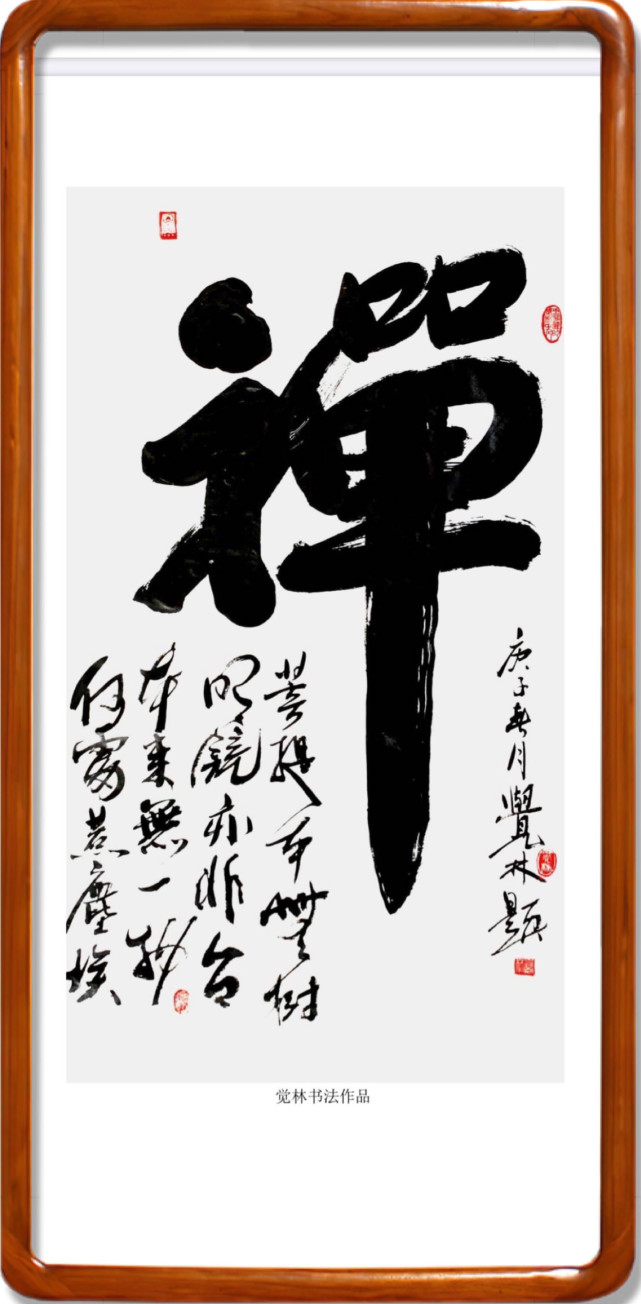 禪
庚子春月覺林題
菩提本無樹
明鏡亦非台
本來無一物
何處惹塵埃
觉林书法作品